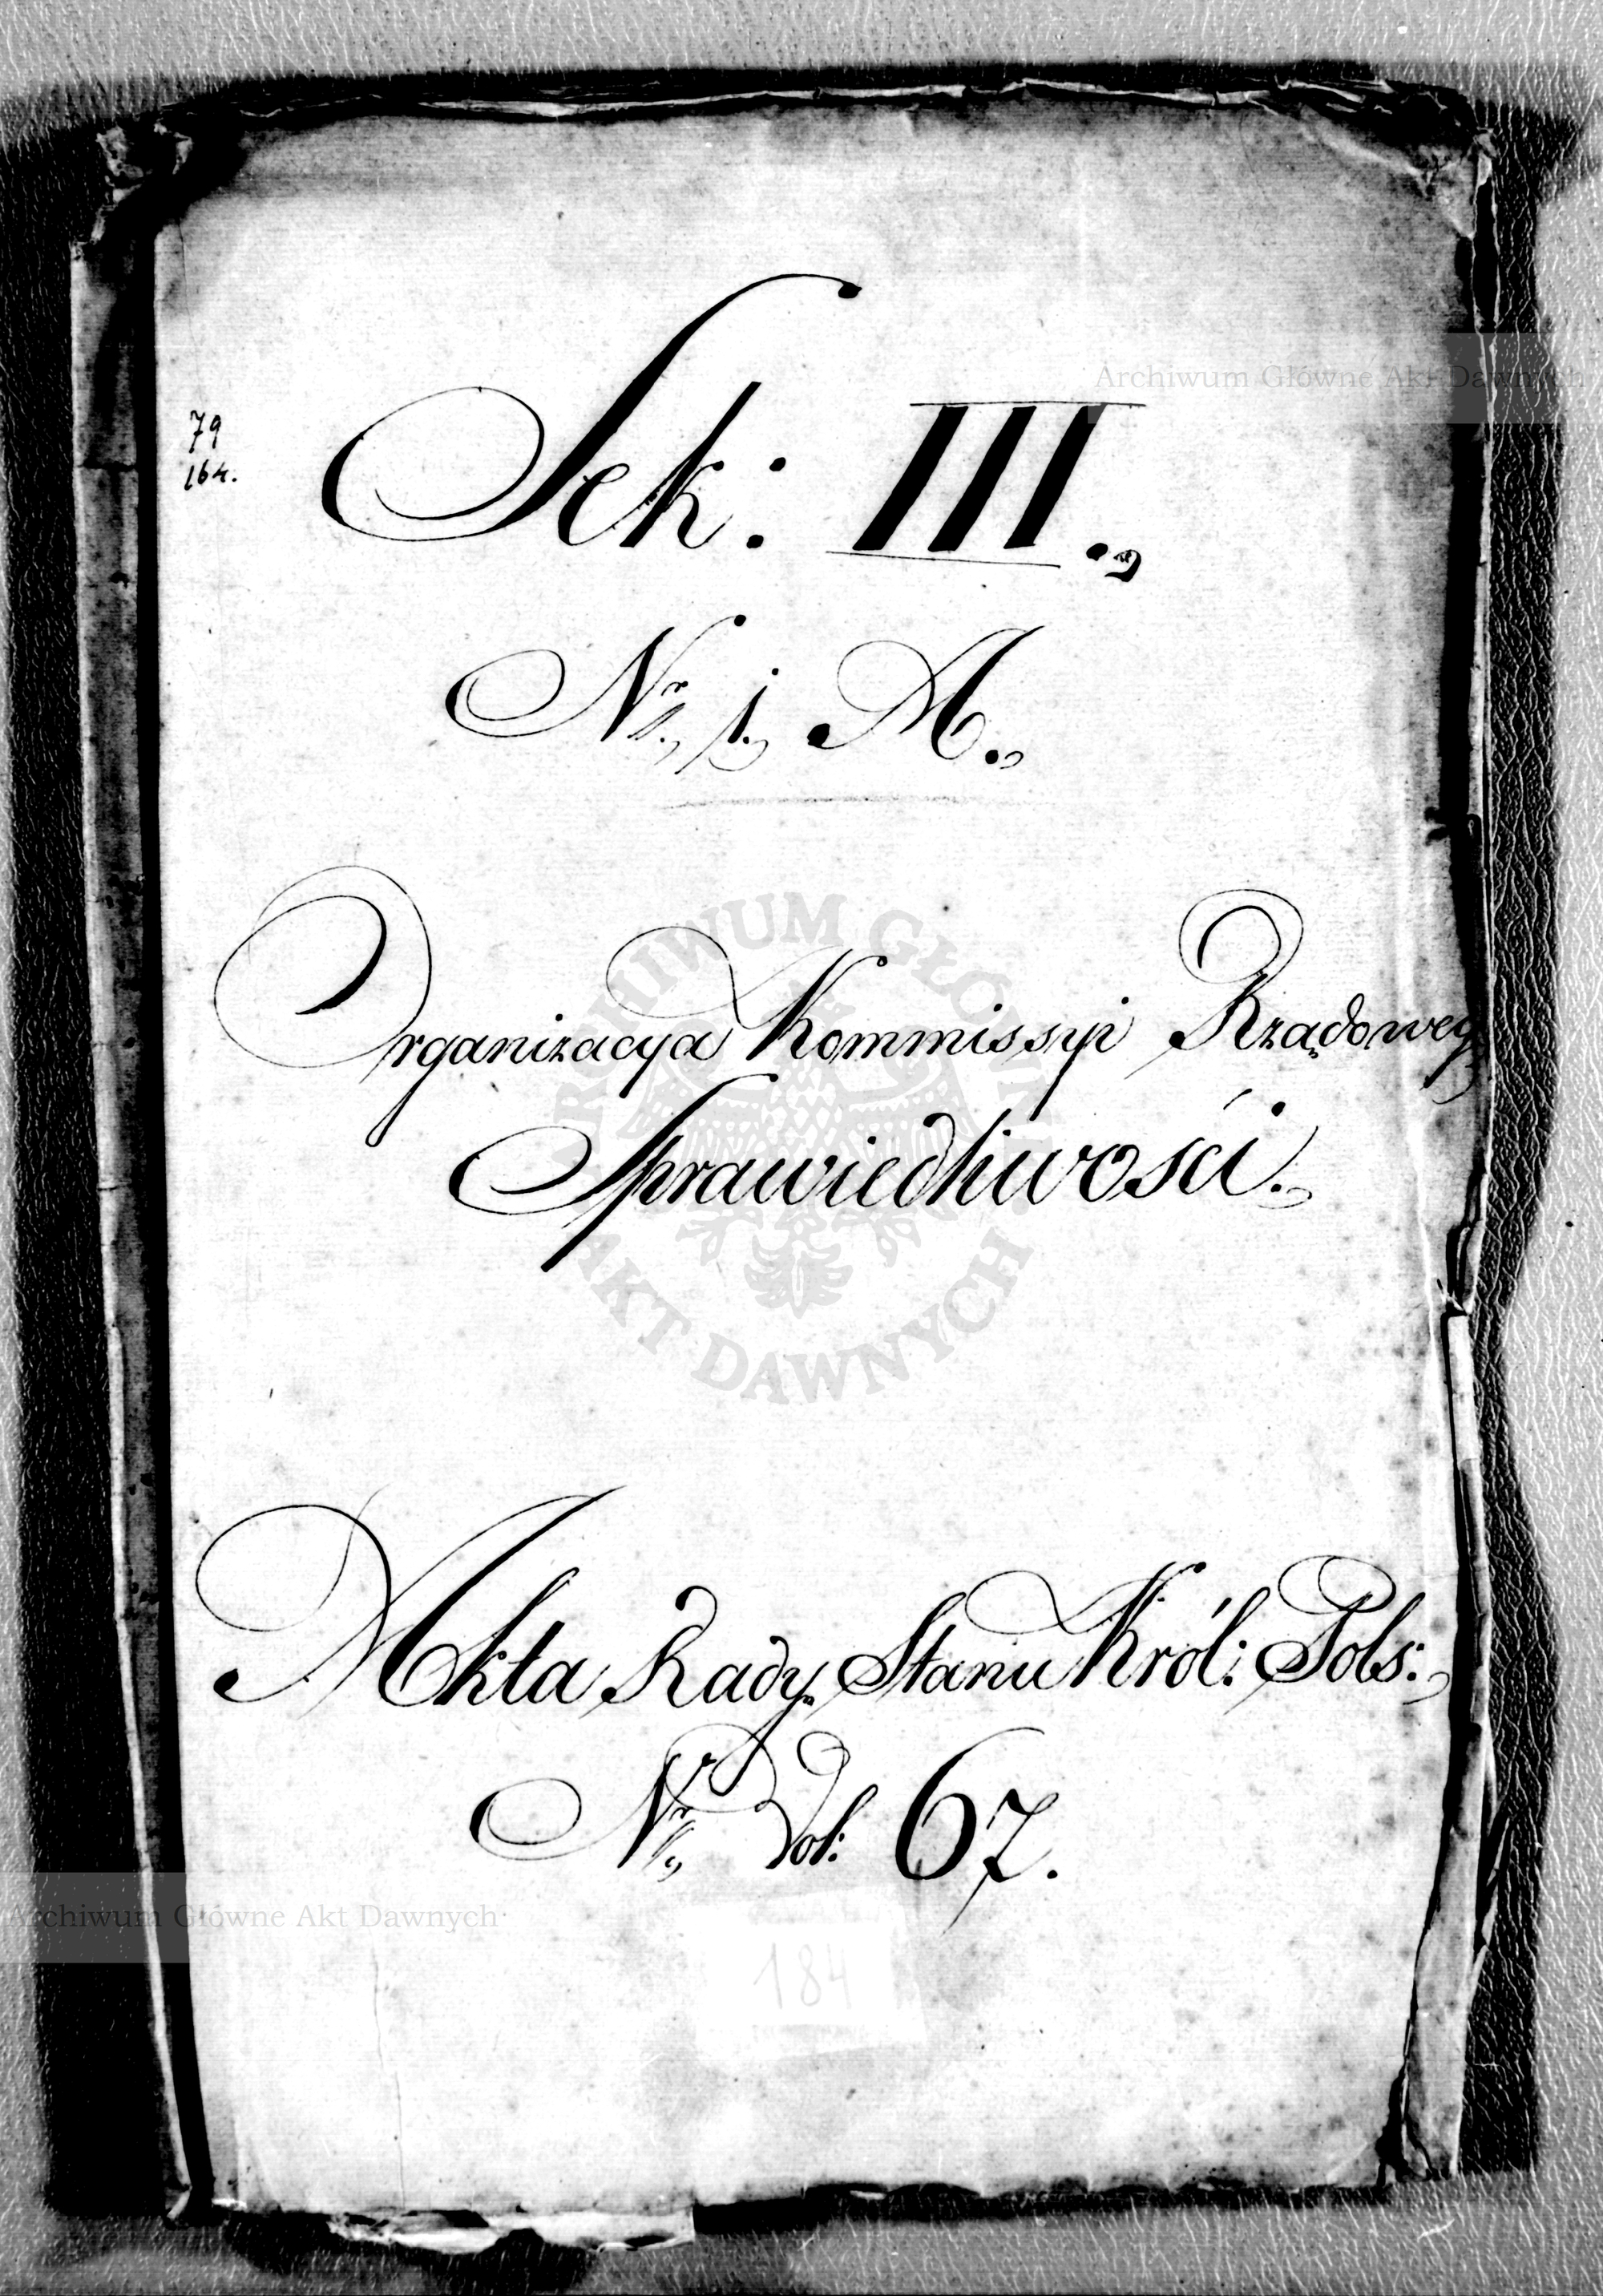 Archiwum Główne Akt Dawnych
79
164.
Sek: III.,
Nr., 1., A.,
Organizacya Kommissyi Rządowey
Sprawiedliwości.,
ARCHIWUM GŁÓWNE
AKT DAWNYCH
Akta Rady Stanu Król: Pols:,
Nr., Vol: 67.
Archiwum Główne Akt Dawnych
184